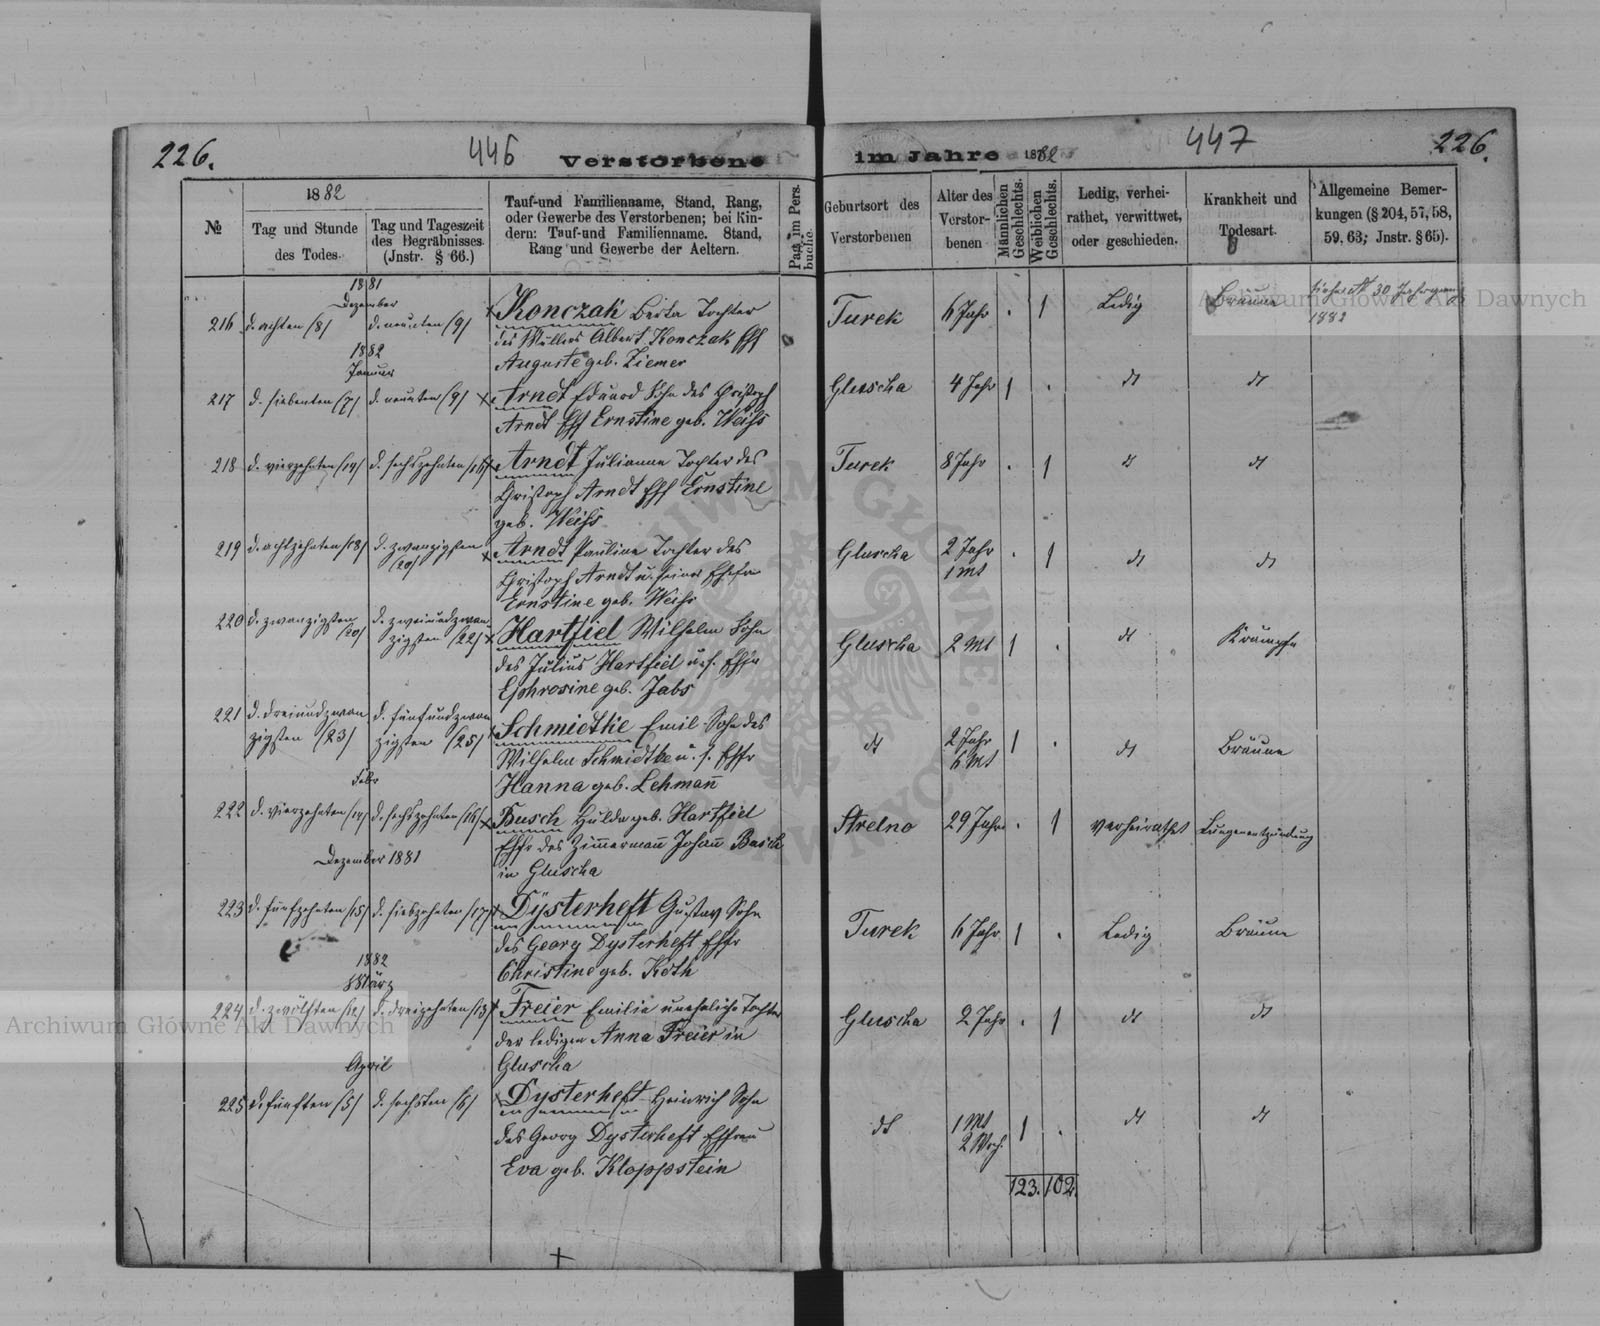 226. 446 Verstorbene im Jahre 1882 447 226.
№
1882
Tag und Stunde
des Todes.
Tag und Tageszeit
des Begräbnisses.
(Jnstr. § 66.)
Tauf-und Familienname, Stand, Rang,
oder Gewerbe des Verstorbenen; bei Kin-
dern: Tauf-und Familienname. Stand,
Rang und Gewerbe der Aeltern.
Pag. im Pers.
buche.
Geburtsort des
Verstorbenen
Alter des
Verstor-
benen
Männlichen
Geschlechts.
Weiblichen
Geschlechts.
Ledig, verhei-
rathet, verwittwet,
oder geschieden.
Krankheit und
Todesart.
Allgemeine Bemer-
kungen (§ 204, 57, 58,
59, 63; Jnstr. § 65).
1881
Dezember
216 d. achten /8/ d. neunten /9/ Konczak Berta Tochter Turek 6 Jahr . 1 Ledig Bräune siehe № 30 Jahrgang
des Müllers Albert Konczak Eff 1882
Auguste geb. Ziemer
1882
Januar
217 d. siebenten /7/ d. neunten /9/ Arndt Eduard Sohn des Christoph Gluscha 4 Jahr 1 . dt dt
Arndt Eff Ernstine geb. Weiß
218 d. vierzehnten /14/ d. sechszehnten /16/ Arndt Julianna Tochter des Turek 8 Jahr . 1 dt dt
Christoph Arndt Eff Ernstine
geb. Weiß
219 d. achtzehnten /18/ d. zwanzigsten /20/ Arndt Pauline Tochter des Gluscha 2 Jahr 1 Mt . 1 dt dt
Christoph Arndt u. seiner Ehefr
Ernstine geb. Weiß
220 d. zwanzigsten /20/ d. zweiundzwan Hartfiel Wilhelm Sohn Gluscha 2 Mt 1 . dt Krämpfe
zigsten /22/
des Julius Hartfiel u. s. Ehfr
Ephrosine geb. Jabs
221 d. dreiundzwan d. fünfundzwan Schmidtke Emil Sohn des dt 2 Jahr 6 Mt 1 . dt Bräune
zigsten /23/ zigsten /25/ Wilhelm Schmidtke u. s. Ehfr
Hanna geb. Lehmañ
Febr
222 d. vierzehnten /14/ d. sechszehnten /16/ Busch Hulda geb. Hartfiel Strelno 29 Jahr . 1 verheirathet Lungenentzündung
Ehfr des Zimmermañ Johañ Busch
in Gluscha
Dezember 1881
223 d. fünfzehnten /15/ d. siebzehnten /17/ Dysterheft Gustav Sohn Turek 6 Jahr 1 . Ledig Bräune
des Georg Dysterheft Ehfr
Christine geb. Koth
1882
März
224 d. zwölften /12/ d. dreizehnten /13/ Freier Emilie uneheliche Tochter Gluscha 2 Jahr . 1 dt dt
der ledigen Anna Freier in
Gluscha
April
225 d. fünften /5/ d. sechsten /6/ Dysterheft Heinrich Sohn dt 1 Mt 2 Wch. 1 . dt dt
des Georg Dysterheft Ehfrau
Eva geb. Kloppstein
123. 102.
Archiwum Główne Akt Dawnych
Archiwum Główne Akt Dawnych